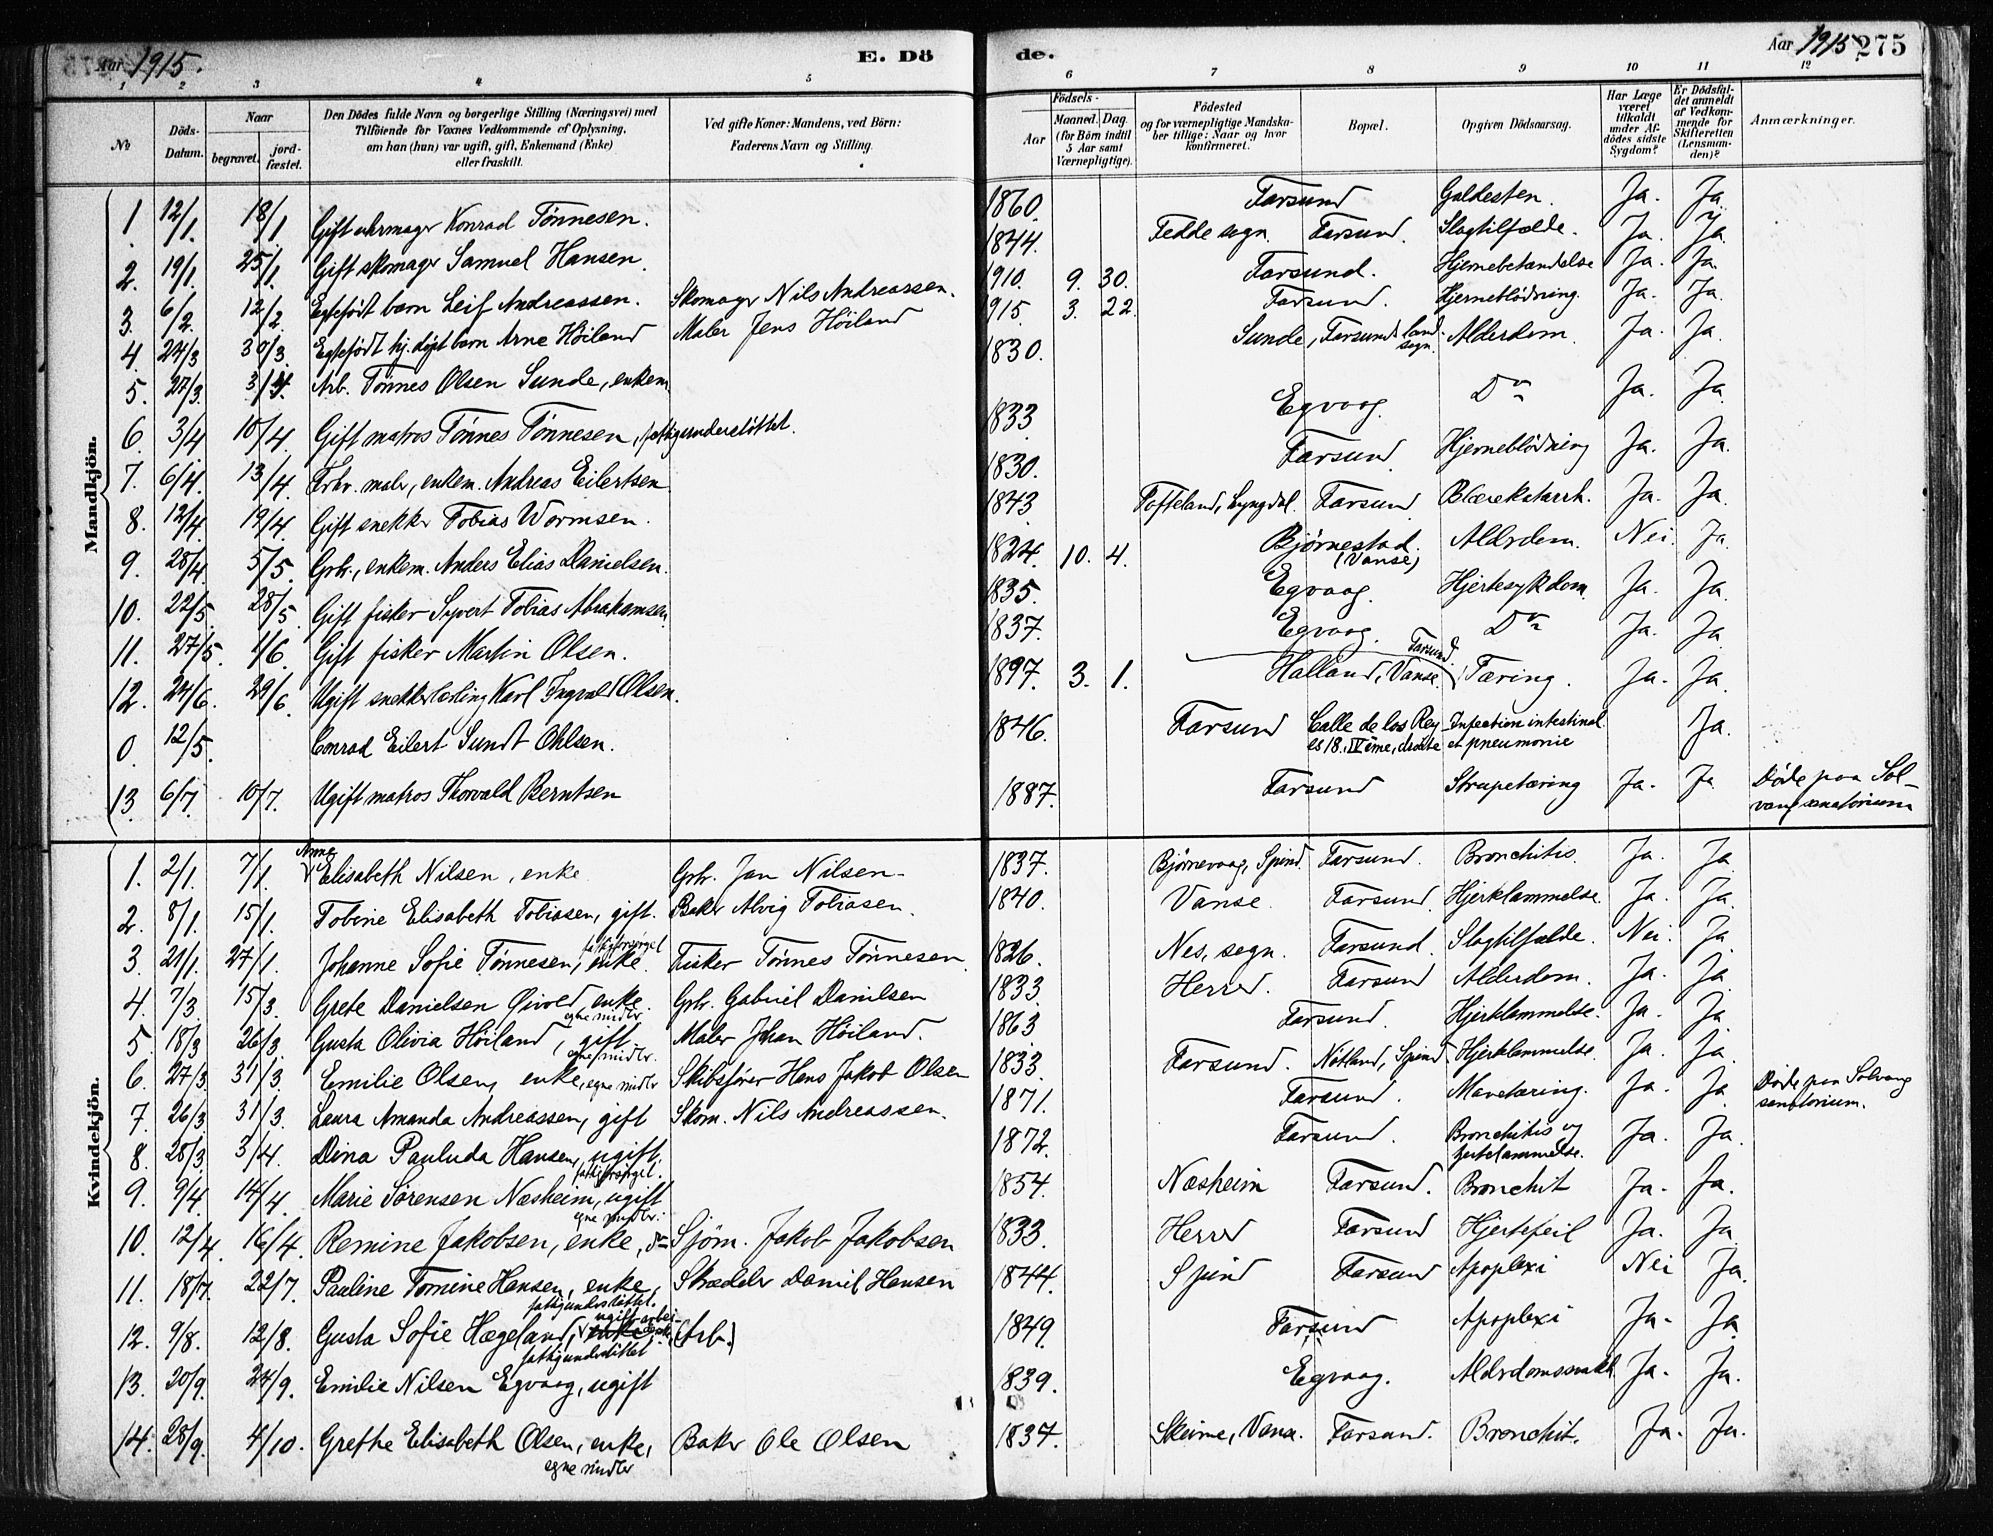 Aar 1915.
E. Dö
1 2 3 4 5
№
Döds-Datum.
Naar
begravet.
jord-fæstet.
Den Dödes fulde Navn og borgerlige Stilling (Næringsvei) med
Tilföiende for Voxnes Vedkommende af Oplysning,
om han (hun) var ugift, gift, Enkemand (Enke)
eller fraskilt.
Ved gifte Koner: Mandens, ved Börn:
Faderens Navn og Stilling.
Mandkjön.
1. 12/1. 18/1 Gift uhrmager Konrad Tönnesen.
2. 19/1. 25/1. Gift skomager Samuel Hansen.
3. 6/2. 12/2. Egtefödt barn Leif Andreassen. Skomager Nils Andreassen.
4. 24/3 30/3. Egtefödt hj. döpt barn Arne Höiland Maler Jens Höiland
5. 27/3. 3/4. Arb. Tönnes Olsen Sunde, enkem.
6. 3/4 10/4. Gift matros Tönnes Tönnesen, fattigunderstöttet.
7. 6/4. 13/4. Fhv. maler, enkem. Andreas Eilertsen
8. 12/4 19/4. Gift snekker Tobias Wormsen.
9. 28/4 5/5. Grbr., enkem. Anders Elias Danielsen.
10. 22/5. 28/5. Gift fisker Syvert Tobias Abrahamsen
11. 27/5. 1/6. Gift fisker Martin Olsen.
12. 24/6. 29/6. Ugift snekkerlærling Karl Ingvald Olsen.
0. 12/5. Conrad Eilert Sundt Ohlsen.
13. 6/7. 10/7. Ugift matros Thorvald Berntsen
Kvindekjön.
1. 2/1. 7/1. Anne Elisabeth Nilsen, enke Grbr. Jan Nilsen
2. 8/1. 15/1. Tobine Elisabeth Tobiasen, gift. Baker Alvig Tobiasen.
3. 21/1. 27/1. Johanne Sofie Tönnesen, enke. fattigforsörget Fisker Tönnes Tönnesen.
4. 7/3. 15/3. Grete Danielsen Qvold, enke. egne midler. Grbr. Gabriel Danielsen
5. 18/3 26/3. Gusta Olivia Höiland, gift egne midler. Maler Johan Höiland.
6. 27/3. 31/3. Emilie Olsen, enke, egne midler Skibsförer Hans Jakob Olsen
7. 26/3 31/3. Laura Amanda Andreassen, gift Skom. Nils Andreassen.
8. 28/3. 3/4. Dina Pauluda Hansen, ugift. fattigforsörget.
9. 9/4. 14/4. Marie Sörensen Næsheim, ugift egne midler.
10. 12/4. 16/4. Remine Jakobsen, enke, do Sjöm. Jakob Jakobsen
11. 18/7. 22/7. Pauline Tomine Hansen, enke, fattigunderstöttet. Skrædder Daniel Hansen
12. 9/8. 12/8. Gusta Sofie Hægeland, enke ugift arbeiderske (Arb.) fattigunderstöttet
13. 20/9. 24/9. Emilie Nilsen Egvaag, ugift
14. 28/9. 4/10. Grethe Elisabeth Olsen, enke, egne midler Baker Ole Olsen
de.
Aar 1915 275
6 7 8 9 10 11 12
Födsels-
Aar
Maaned. Dag.
(for Börn indtil
5 Aar samt
Værnepligtige).
Födested
og for værnepligtige Mandska-
ber tillige: Naar og hvor
konfirmeret.
Bopæl.
Opgiven Dödsaarsag.
Har Læge
været
tilkaldt
under Af-
dödes sidste
Sygdom?
Er Dödsfal-
det anmeldt
af Vedkom-
mende for
Skifteretten
(Lensman-
den)?
Anmærkninger.
1860. Farsund Galdesten. Ja. Ja.
1844. Fedde sogn. Farsund. Slagtilfælde. Ja. Ja
1910. 9. 30. Farsund. Hjernebetændelse Ja. Ja
1915. 3. 22. Farsund. Hjerneblödning. Ja. Ja.
1830. Sunde, Farsunds landsogn. Alderdom. Ja. Ja.
1833 Egvaag. Do Ja. Ja.
1830. Farsund. Hjerneblödning Ja. Ja.
1843 Tofteland, Lyngdal. Farsund. Blærekatarrh. Ja. Ja.
1824. 10. 4. Bjørnestad. (Vanse) Alderdom. Nei. Ja.
1835. Egvaag. Hjertesykdom. Ja. Ja.
1837. Egvaag. Do Ja. Ja
1897. 3. 1. Halland, Vanse. Farsund. Tæring. Ja. Ja.
1846. Farsund Calle de los Reyes 18. IVème, droite Infection intestinal et pneumonie Ja.
1887. Farsund Strupetæring Ja. Ja Döde paa Solvang sanatorium
1837. Bjørnevaag, Spind. Farsund. Bronchitis. Ja. Ja
1840. Vanse. Farsund. Hjertelammelse. Ja. Ja.
1826. Nes, sogn. Farsund. Slagtilfælde. Nei. Ja.
1833. Herred. Farsund Alderdom. Ja. Ja.
1863 Farsund. Hjertelammelse. Ja. Ja.
1833. Farsund. Nötland, Spind Hjertelammelse. Ja. Ja.
1871. Farsund. Mavetæring. Ja. Ja. Döde paa Solvang sanatorium.
1872. Farsund. Bronchitis og hjertelammelse. Ja. Ja.
1854. Næsheim Farsund. Bronchit Ja. Ja.
1833. Herred Farsund Hjertefeil Ja. Ja
1844. Spind Farsund Apoplexi Nei Ja.
1849. Farsund Apoplexi Ja. Ja.
1839. Egvaag. Alderdomssvakh. Ja. Ja.
1837. Skeime, Vanse. Farsund. Bronchit. Ja. Ja.